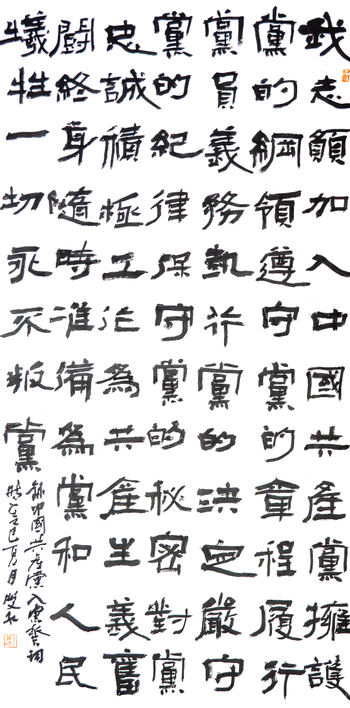 我志願加入中國共產黨擁護
黨的綱領遵守黨的章程履行
黨員義務執行黨的決定嚴守
黨的紀律保守黨的秘密對黨
忠誠積極工作為共產主義奮
鬪終身隨時准備為黨和人民
犧牲一切永不叛黨
錄中國共產黨入黨誓詞